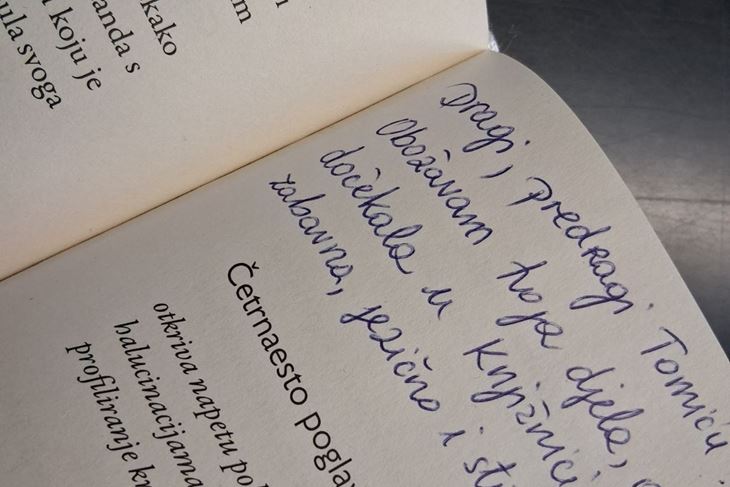 kako
anda s
koju je
ula svoga
Dragi, predragi Tomiću
Obožavam tvoja djela,
dočekala u knjižnici
zabavna, jezično i sti
Četrnaesto poglav
otkriva napetu po
halucinacijama
profiliranje kr